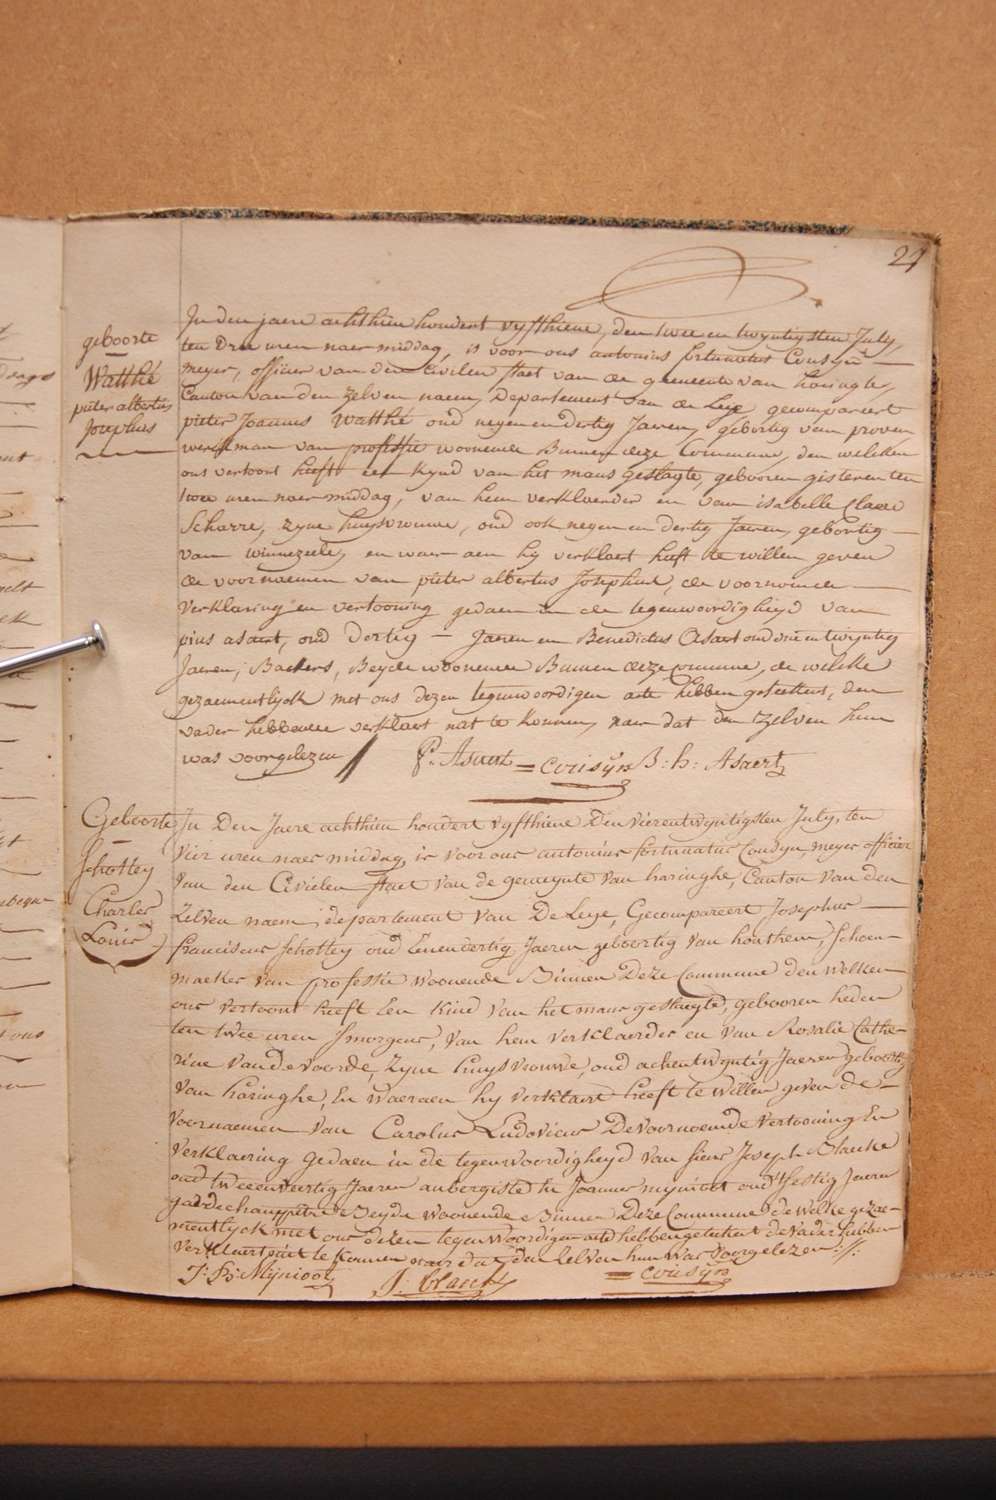 24
geboorte
Watthé
pieter albertus
Josephus
In den jaere achthien hondert vyfthiene, den twee en twyntigsten July,
ten Drie uren naer middag, is voor ons antonius fortunatus Cousyn
meyer, officier van den Civilen staet van de gemeente van haringhe,
Canton van den zelven naem, Departement van de Leye gecompareert
pieter Joannes Watthé oud negenendertig Jaeren, gebortig van proven
werkman van professie woonende Binnen deze Commune, den welcken
ons vertoont heeft een kynd van het mans geslagte, gebooren gisteren ten
twee uren naer middag, van hem verklaerder en van isabelle Claere
Scharre, zyne huysvrouwe, oud ook negen en dertig Jaeren, gebortig
van winnezeele, en waer aen hy verklaert heeft te willen geven
de voornaemen van pieter albertus Josephus, de voornoemde
verklaring en vertooning gedaen in de tegenwoordigheyd van
pius asaert, oud dertig Jaeren en Benedictus Asaert oud drie en twyntig
Jaeren, Backers, Beyde woonende Binnen deze Commune, de welcke
gezaementlyck met ons dezen tegenwoordigen acte hebben geteekent, den
vader hebbende verklaert niet te konnen, naer dat den zelven hun
was voorgelezen
P. Asaert = Cousyn B: h: Asaert
Geboorte
Schottey
Charles
Louis
In Den Jaere achthien hondert vyfthiene Den vierentwyntigsten July, ten
vier uren naer middag, is voor ons antonius fortunatus Cousyn, meyer officier
van den Civielen Staet van de gemeynte van haringhe, Canton van den
Zelven naem, departement van De Leye, Gecompareert Josephus
franciscus Schottey oud Eenendertig Jaeren geboortig van houthem, schoen
maeker van professie woonende Binnen Deze Commune den welken
ons vertoont heeft Een kind van het mans geslagte, gebooren heden
ten twee uren smorgens, van hem verklaerder en van Rosalie Cathe-
rine vandevoorde, Zyne huysvrouwe, oud achentwyntig Jaeren geboortig
van haringhe, En waeraen hy verklaert heeft te willen geven de
voornaemen van Carolus Ludovicus De voornoemde vertooning En
verklaering gedaen in de tegenwoordigheyd van sieur Joseph Blancke
oud tweeenveertig Jaeren aubergiste En Joannes mynioot oud sestig Jaeren
gardechampetre Beyde woonende Binnen Deze Commune de welke gezae-
mentlyck met ons dezen tegenwoordigen acte hebben geteekent de vader hebben
verklaert niet te konnen naer dat den zelven hun was voorgelezen
J: Fs: Mynioot J: Blancke = Cousyn